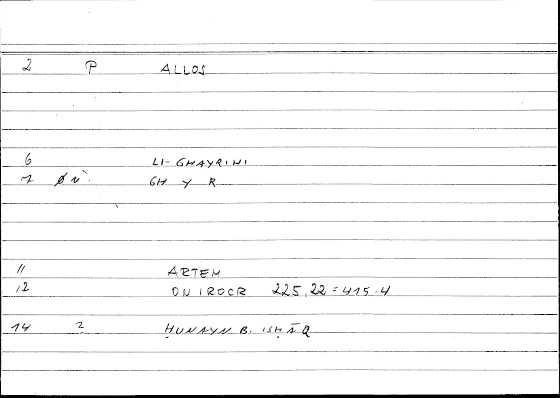 2 P ALLOS
6 LI-GHAYRIHI
7 GH Y R
11 ARTEM
12 ONIROCR 225,22=415.4
14 2 ḤUNAYN B. ISḤĀQ